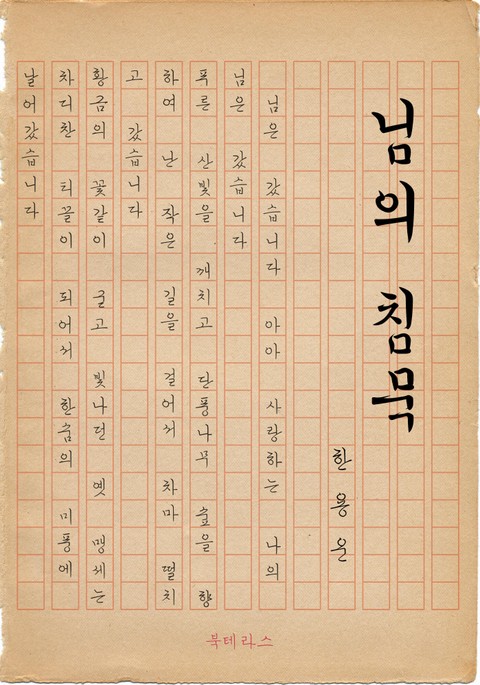 님의 침묵
한용운
님은 갔습니다 아아 사랑하는 나의
님은 갔습니다
푸른 산빛을 깨치고 단풍나무 숲을 향
하여 난 작은 길을 걸어서 차마 떨치
고 갔습니다
황금의 꽃같이 굳고 빛나던 옛 맹세는
차디찬 티끌이 되어서 한숨의 미풍에
날어갔습니다
북테라스